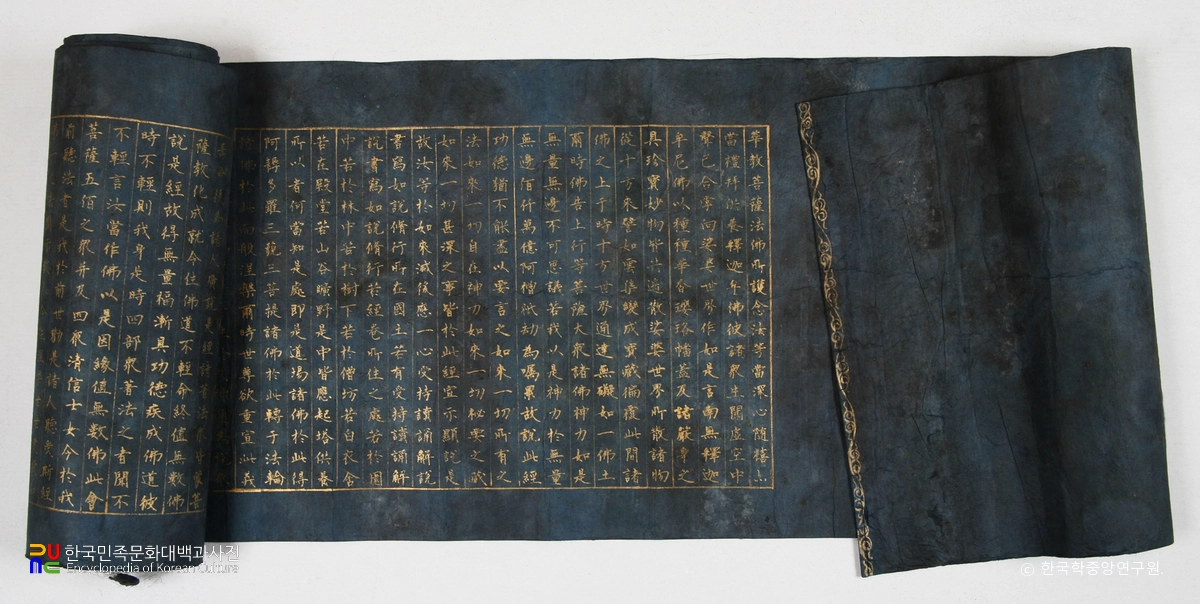 華教菩薩法佛所護念汝等當深心隨喜亦
當禮拜供養釋迦牟尼佛彼諸衆生聞虛空中
聲已合掌向娑婆世界作如是言南無釋迦
牟尼佛以種種華香瓔珞幡蓋及諸嚴身之
具珍寶妙物皆共遙散娑婆世界所散諸物
從十方來譬如雲集變成寶帳徧覆此間諸
佛之上于時十方世界通達無礙如一佛土
爾時佛告上行等菩薩大衆諸佛神力如是
無量無邊不可思議若我以是神力於無量
無邊佰仟萬億阿僧祇劫爲囑累故說此經
功德猶不能盡以要言之如來一切所有之
法如來一切自在神力如來一切秘要之藏
如來一切甚深之事皆於此經宣示顯說是
故汝等於如來滅後應一心受持讀誦解說
書寫如說修行所在國土若有受持讀誦解
說書寫如說修行若經卷所住之處若於園
中若於林中若於樹下若於僧坊若白衣舍
若在殿堂若山谷曠野是中皆應起塔供養
所以者何當知是處即是道場諸佛於此得
阿耨多羅三藐三菩提諸佛於此轉于法輪
諸佛於此而般涅槃爾時世尊欲重宣此義
薩教化成就令住佛道不輕命終值無數佛
說是經故得無量福漸具功德疾成佛道彼
時不輕則我身是時四部衆著法之者聞不
不輕言汝當作佛以是因緣值無數佛此會
菩薩五佰之衆并及四衆清信士女今於我
前聽法者是我於前世勸是諸人聽受斯經
한국민족문화대백과사전
Encyclopedia of Korean Culture
ⓒ 한국학중앙연구원.